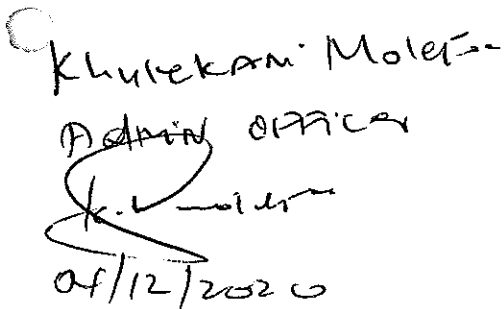 Khulekani Molefe
Admin Officer
04/12/2020